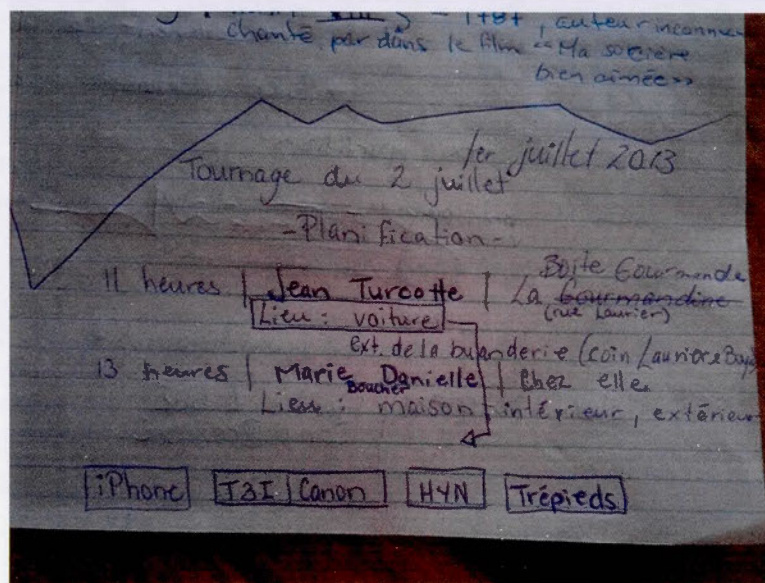 1787, auteur inconnu
chanté par dans le film «Ma sorcière
bien aimée»
1er juillet 2013
Tournage du 2 juillet
-Planification-
11 heures | Jean Turcotte | La Gourmandine Boîte Gourmande
(rue Laurier)
Lieu : voiture
ext. de la buanderie (coin Laurier &
13 heures | Marie Danielle Boucher | Chez elle
Lieu : maison intérieur, extérieur
iPhone T3I | Canon H4N Trépieds